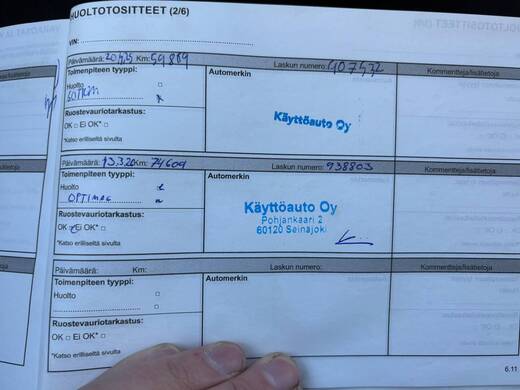 HUOLTOTOSITTEET (2/6)
VIN:
Päivämäärä: Km: 59889 Laskun numero: 407532 Kommentteja/lisätietoja
Toimenpiteen tyyppi: Automerkin
Huolto
Käyttöauto Oy
Ruostevauriotarkastus:
OK □ Ei OK* □
*Katso erilliseltä sivulta
Päivämäärä: 13.3.20 Km: 74609 Laskun numero: 938803 Kommentteja/lisätietoja
Toimenpiteen tyyppi: Automerkin
Huolto
OPTIMAG
Käyttöauto Oy
Pohjankaari 2
60120 Seinäjoki
Ruostevauriotarkastus:
OK Ei OK* □
*Katso erilliseltä sivulta
Päivämäärä: Km: Laskun numero: Kommentteja/lisätietoja
Toimenpiteen tyyppi: Automerkin
Huolto □
Ruostevauriotarkastus:
OK □ Ei OK* □
*Katso erilliseltä sivulta
6.11